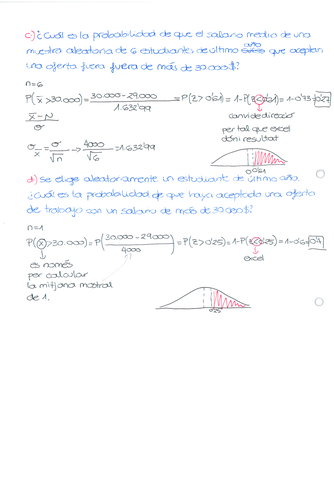 c) ¿Cuál es la probabilidad de que el salario medio de una
muestra aleatoria de 6 estudiantes de último año que aceptan
una oferta fuera fuera de más de 30.000$?
n=6
P(x̄>30.000) = 30.000-29.000 / 1.632'99 = P(Z>0'61) = 1-P(Z<0'61) = 1-0'73 = 0'27
x̄-N / σ
canvi de direcció
per tal que excel
doni resultat
σx̄ = σ/√n → 4000/√6 = 1.632'99
0'61
d) Se elige aleatoriamente un estudiante de último año.
¿Cuál es la probabilidad de que haya aceptado una oferta
de trabajo con un salario de más de 30.000$?
n=1
P(x>30.000) = P(30.000-29.000 / 4000) = P(Z>0'25) = 1-P(Z<0'25) = 1-0'6
és només
per calcular
la mitjana mostral
de 1.
excel
0'25